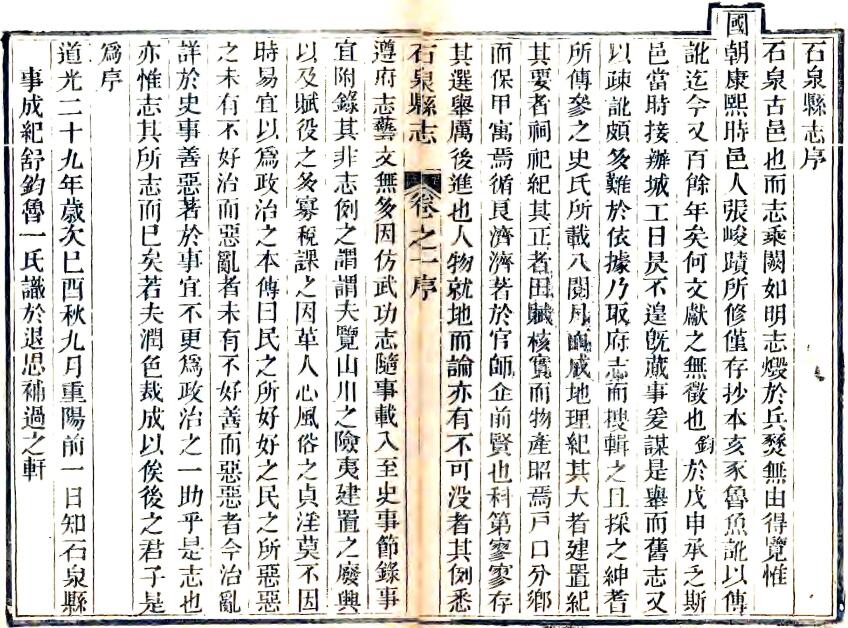 石泉縣志序
石泉古邑也而志乘闕如明志燬於兵燹無由得覽惟
國朝康熙時邑人張峻蹟所修僅存抄本亥豕魯魚訛以傳
訛迄今又百餘年矣何文獻之無徵也鈞於戊申承乏斯
邑當時接辦城工日昃不遑旣蕆事爰謀是舉而舊志又
以疎訛頗多難於依據乃取府志而搜輯之且採之紳耆
所傳參之史氏所載八閱月而成地理紀其大者建置紀
其要者祠祀紀其正者田賦核實而物產昭焉戶口分鄉
而保甲寓焉循良濟濟著於官師企前賢也科第寥寥存
其選舉厲後進也人物就地而論亦有不可没者其例悉
石泉縣志
卷之一序
遵府志藝文無多因仿武功志隨事載入至史事節錄事
宜附錄其非志例之謂謂夫覽山川之險夷建置之廢興
以及賦役之多寡稅課之因革人心風俗之貞淫莫不因
時易宜以爲政治之本傳曰民之所好好之民之所惡惡
之未有不好治而惡亂者未有不好善而惡惡者今治亂
詳於史事善惡著於事宜不更爲政治之一助乎是志也
亦惟志其所志而已矣若夫潤色裁成以俟後之君子是
爲序
道光二十九年歲次已酉秋九月重陽前一日知石泉縣
事成紀舒鈞魯一氏識於退思補過之軒